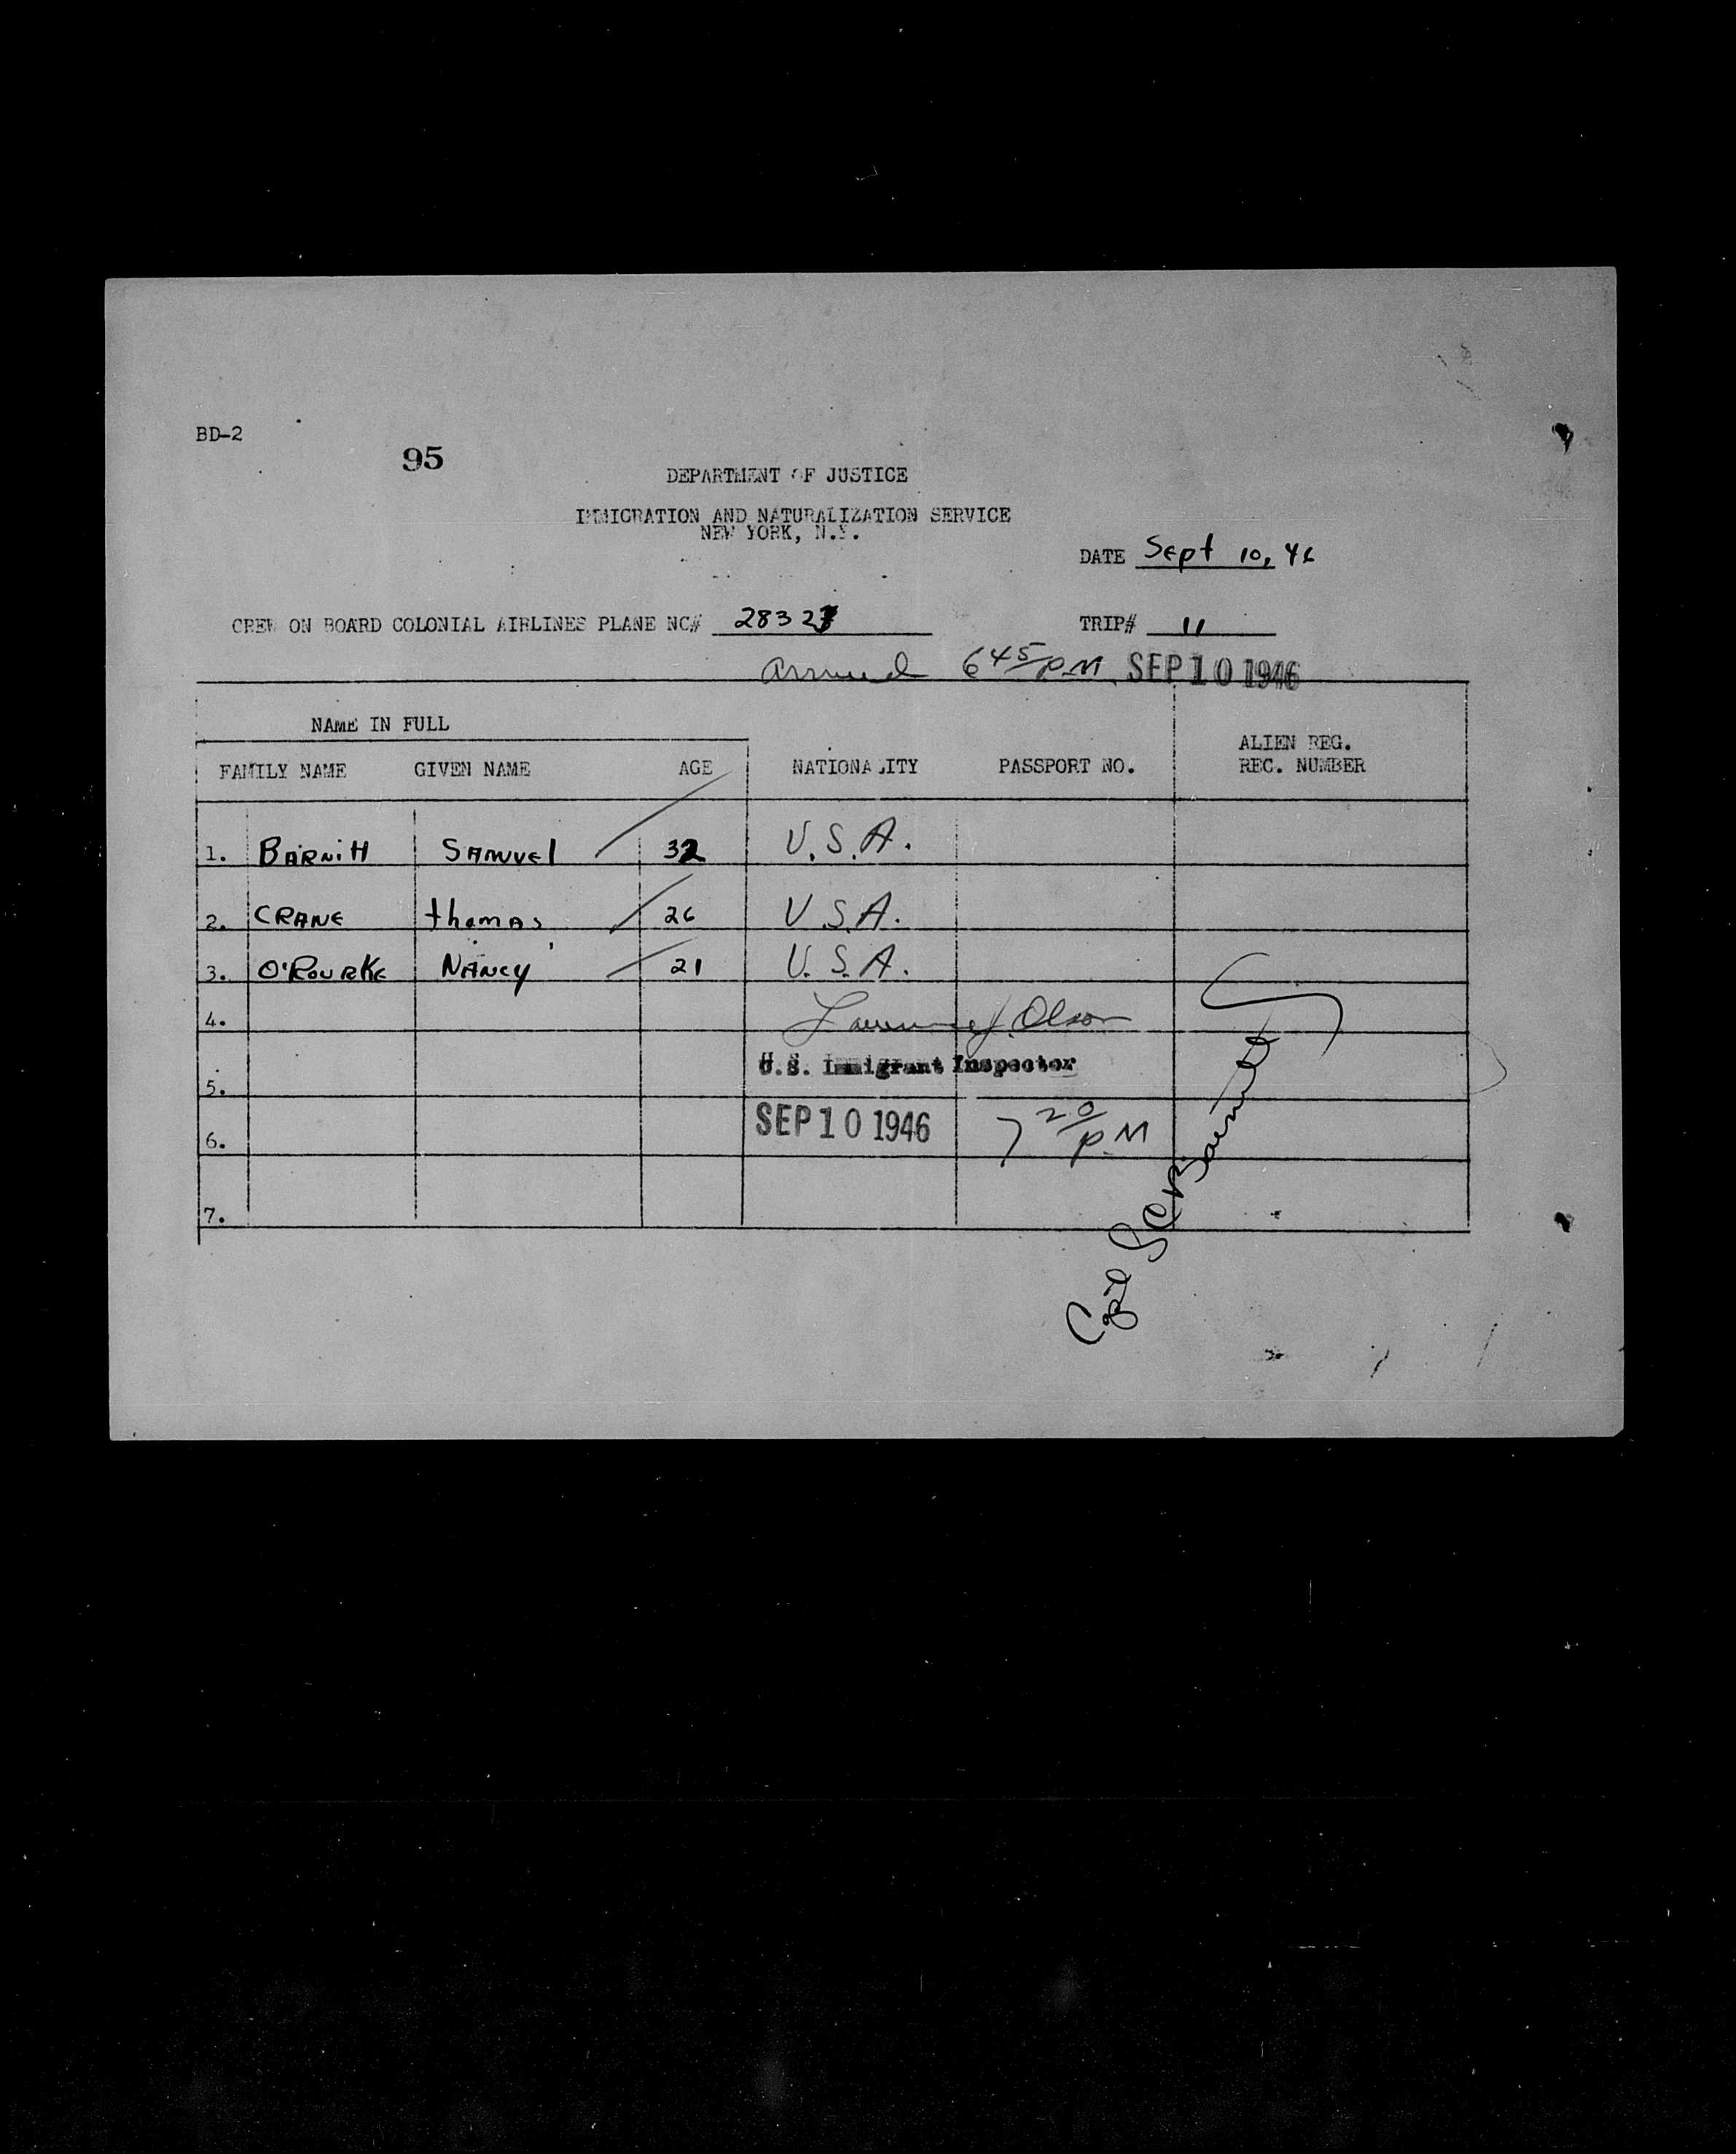 BD-2
95
DEPARTMENT OF JUSTICE
IMMIGRATION AND NATURALIZATION SERVICE
NEW YORK, N.Y.
DATE Sept 10, 46
CREW ON BOARD COLONIAL AIRLINES PLANE NC# 28327 TRIP# 11
arrived 6 45/PM SEP 10 1946
NAME IN FULL
FAMILY NAME GIVEN NAME AGE NATIONALITY PASSPORT NO. ALIEN REG. REC. NUMBER
1. BARNITT SAMUEL 32 U.S.A.
2. CRANE thomas 26 U.S.A.
3. O'ROURKE NANCY 21 U.S.A.
4. Olson
5. U.S. Immigrant Inspector
6. SEP 10 1946 7 20/PM
7.